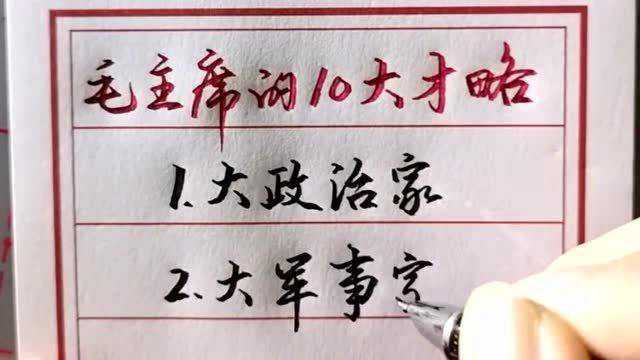 毛主席的10大才略
1.大政治家
2.大军事